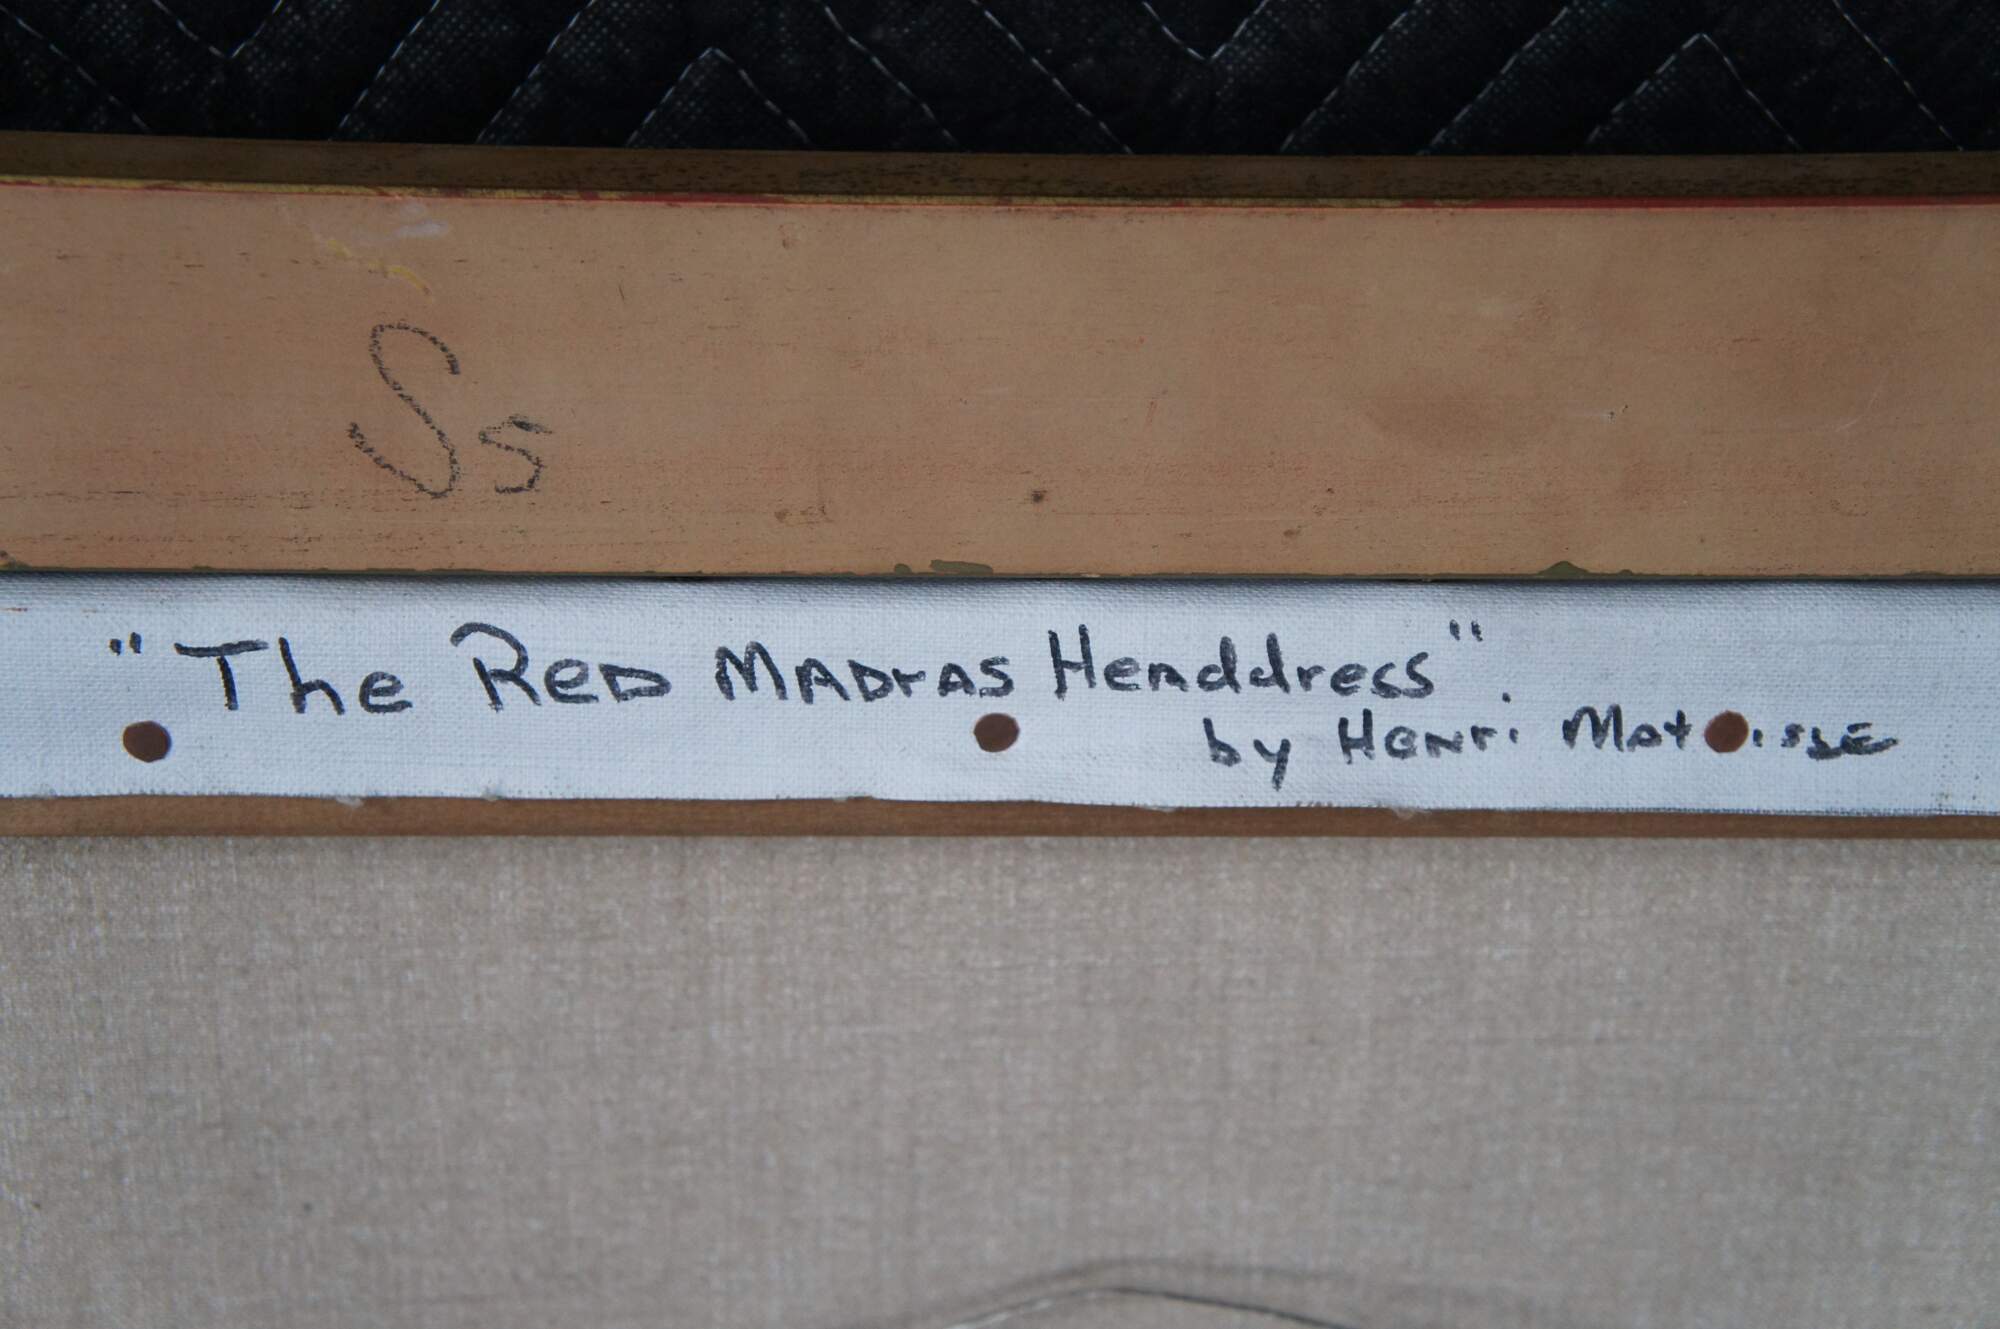 Ss
"The Red Madras Headdress".
by Henri Matisse